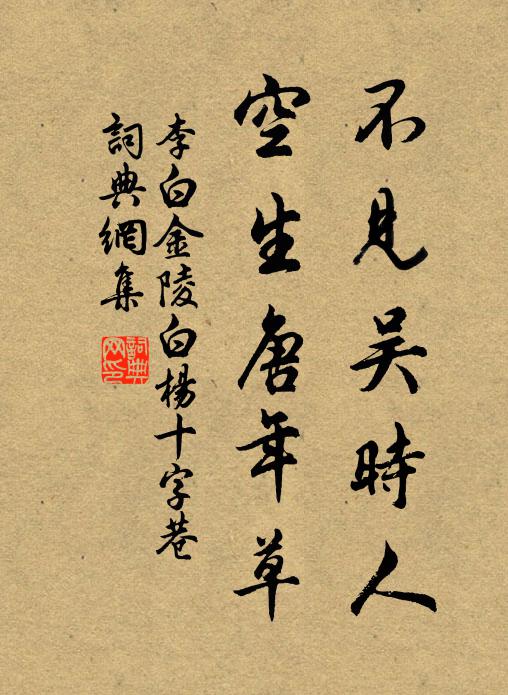 不見吳時人
空生唐年草
李白金陵白楊十字巷
詞典網集
詞典網印